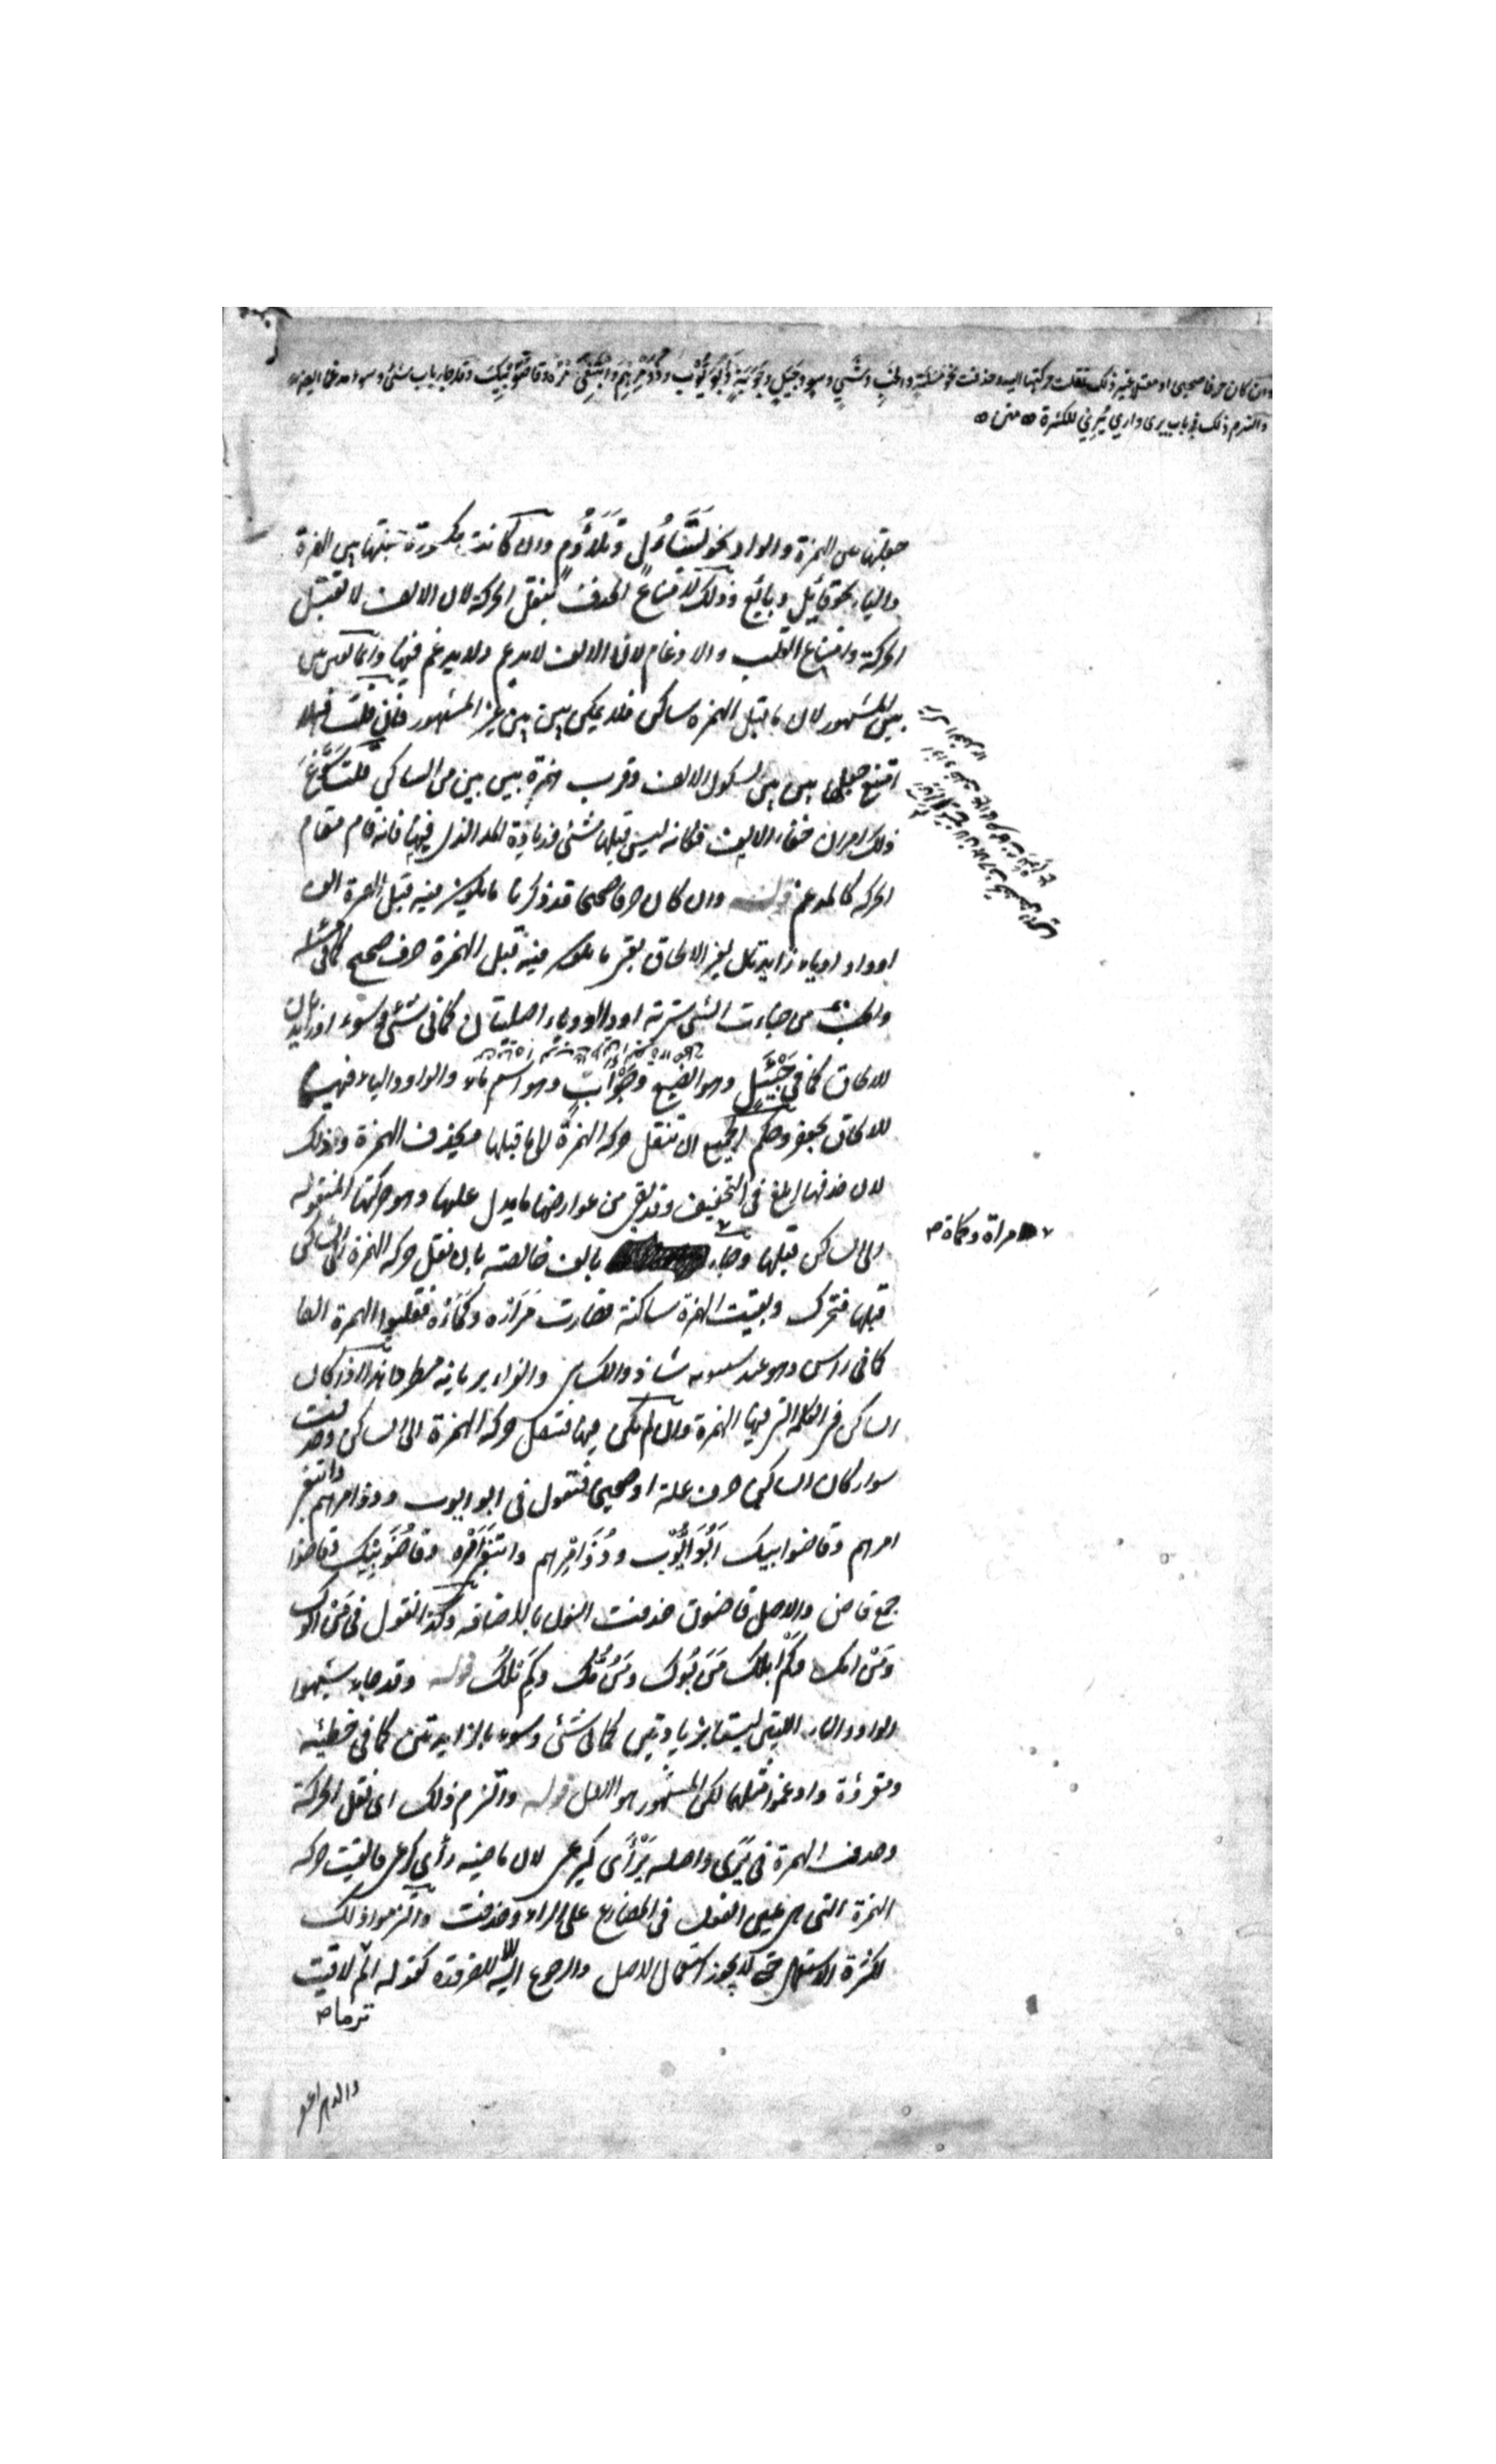 وان كان حرفا صحيحا او معتلا غير ذلك نقلت حركتها اليه وحذفت نحو مسلة والخب وشي وسو وجيل وحوبة وابو يوب وذو مرهم وابتغي مره وقاضو بيك وقد جاء باب شيء وسوء مدغما ايضا
والتزم ذلك في باب يرى واري يري للكثرة ه متن ه
جعلتها بين الهمزة والواو نحو تساءُل وتلاؤم وان كانت مكسورة جعلتها بين الهمزة
والياء نحو قائل وبائع وذلك لامتناع الحذف بنقل الحركة لان الالف لا تقبل
الحركة وامتناع القلب والادغام لان الالف لا يدغم ولا يدغم فيها وانما تعين بين
بين المشهور لان ما قبل الهمزة ساكن فلا يمكن بين بين غير المشهور فان قلت فهلا
امتنع جعلها بين بين لسكون الالف وقرب همزة بين بين من الساكن قلت سوغ
ذلك امران خفاء الالف فكانه ليس قبلها شئ وزيادة المد الذي فيها فانه قام مقام
الحركة كالمدغم قوله وان كان حرفا صحيحا قد ذكرنا ما يكون فيه قبل الهمزة الف
او واو او ياء زايدتان لغير الالحاق بقي ما يكون فيه قبل الهمزة حرف صحيح كما في مسئلة
والخبء من خبأت الشئ سترته او الواو وياء اصليتان كما في شئ وسوء او زايدتان
للالحاق كما في جيئل وهو الضبع وحوأب وهو اسم ماء والواو والياء فيهما
للالحاق بجعفر وحكم الجميع ان تنقل حركة الهمزة الى ما قبلها فيحذف الهمزة وذلك
لان حذفها ابلغ في التخفيف وقد بقي من عوارضها ما يدل عليها وهو حركتها المنقولة
الى الساكن قبلها وجاء بالف خالصة بان نقل حركة الهمزة الى الساكن
مراة وكماة ص
قبلها فتحرك وبقيت الهمزة ساكنة فصارت مَرَأْة وكَمَأْة فقلبوا الهمزة الفا
كما في راس وهو عند سيبويه شاذ والكسائي والفراء يريانه مطردا هذا اذا كان
الساكن في الكلمة التي فيها الهمزة وان لم يكن فيها فتنقل حركة الهمزة الى الساكن وحذفت
سواء كان الساكن حرف علة او صحيحا فتقول في ابو ايوب وذو امرهم وابتغي
امرهم وقاضوا ابيك ابو يوب وذو مرهم وابتغي مره وقاضو بيك وقاضوا
جمع قاض والاصل قاضون حذفت النون بالاضافة وكذا تقول في مَنْ ابوك
ومَنْ امك وكم ابلك مَنَ بوك ومَنُ مّك وكمِ بلك قوله وقد جاء شبهوا
الواو والياء اللتين ليستا بزيادتين كما في شئ وسوء بالزايدتين كما في خطيئة
ومقروءة وادغموا مثلهما لكن المشهور هو الاول قوله والتزم ذلك اى نقل الحركة
وحذف الهمزة في يَرَى واصله يَرْأَى كيرعى لان ماضيه رأى كرعى فالقيت حركة
الهمزة التي هي عين الفعل في المضارع على الراء وحذفت والتزموا ذلك
لكثرة الاستعمال حتى لا يجوز استعمال الاصل والرجوع اليه الا للضرورة كقوله الم تر ما لاقيت
والدهر اعصر